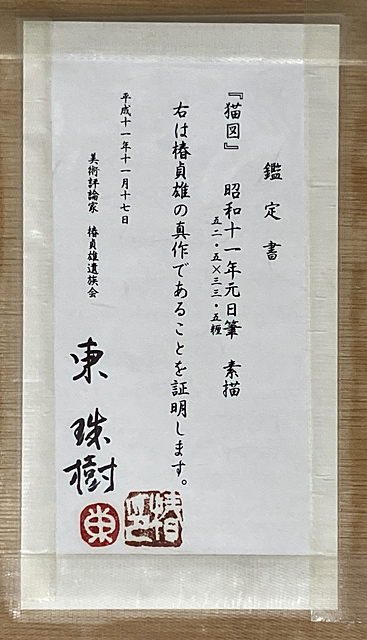 鑑定書
『猫図』 昭和十一年元日筆 素描
五二・五×三三・五糎
右は椿貞雄の真作であることを証明します。
平成十一年十一月十七日
美術評論家 椿貞雄遺族会
東珠樹
東